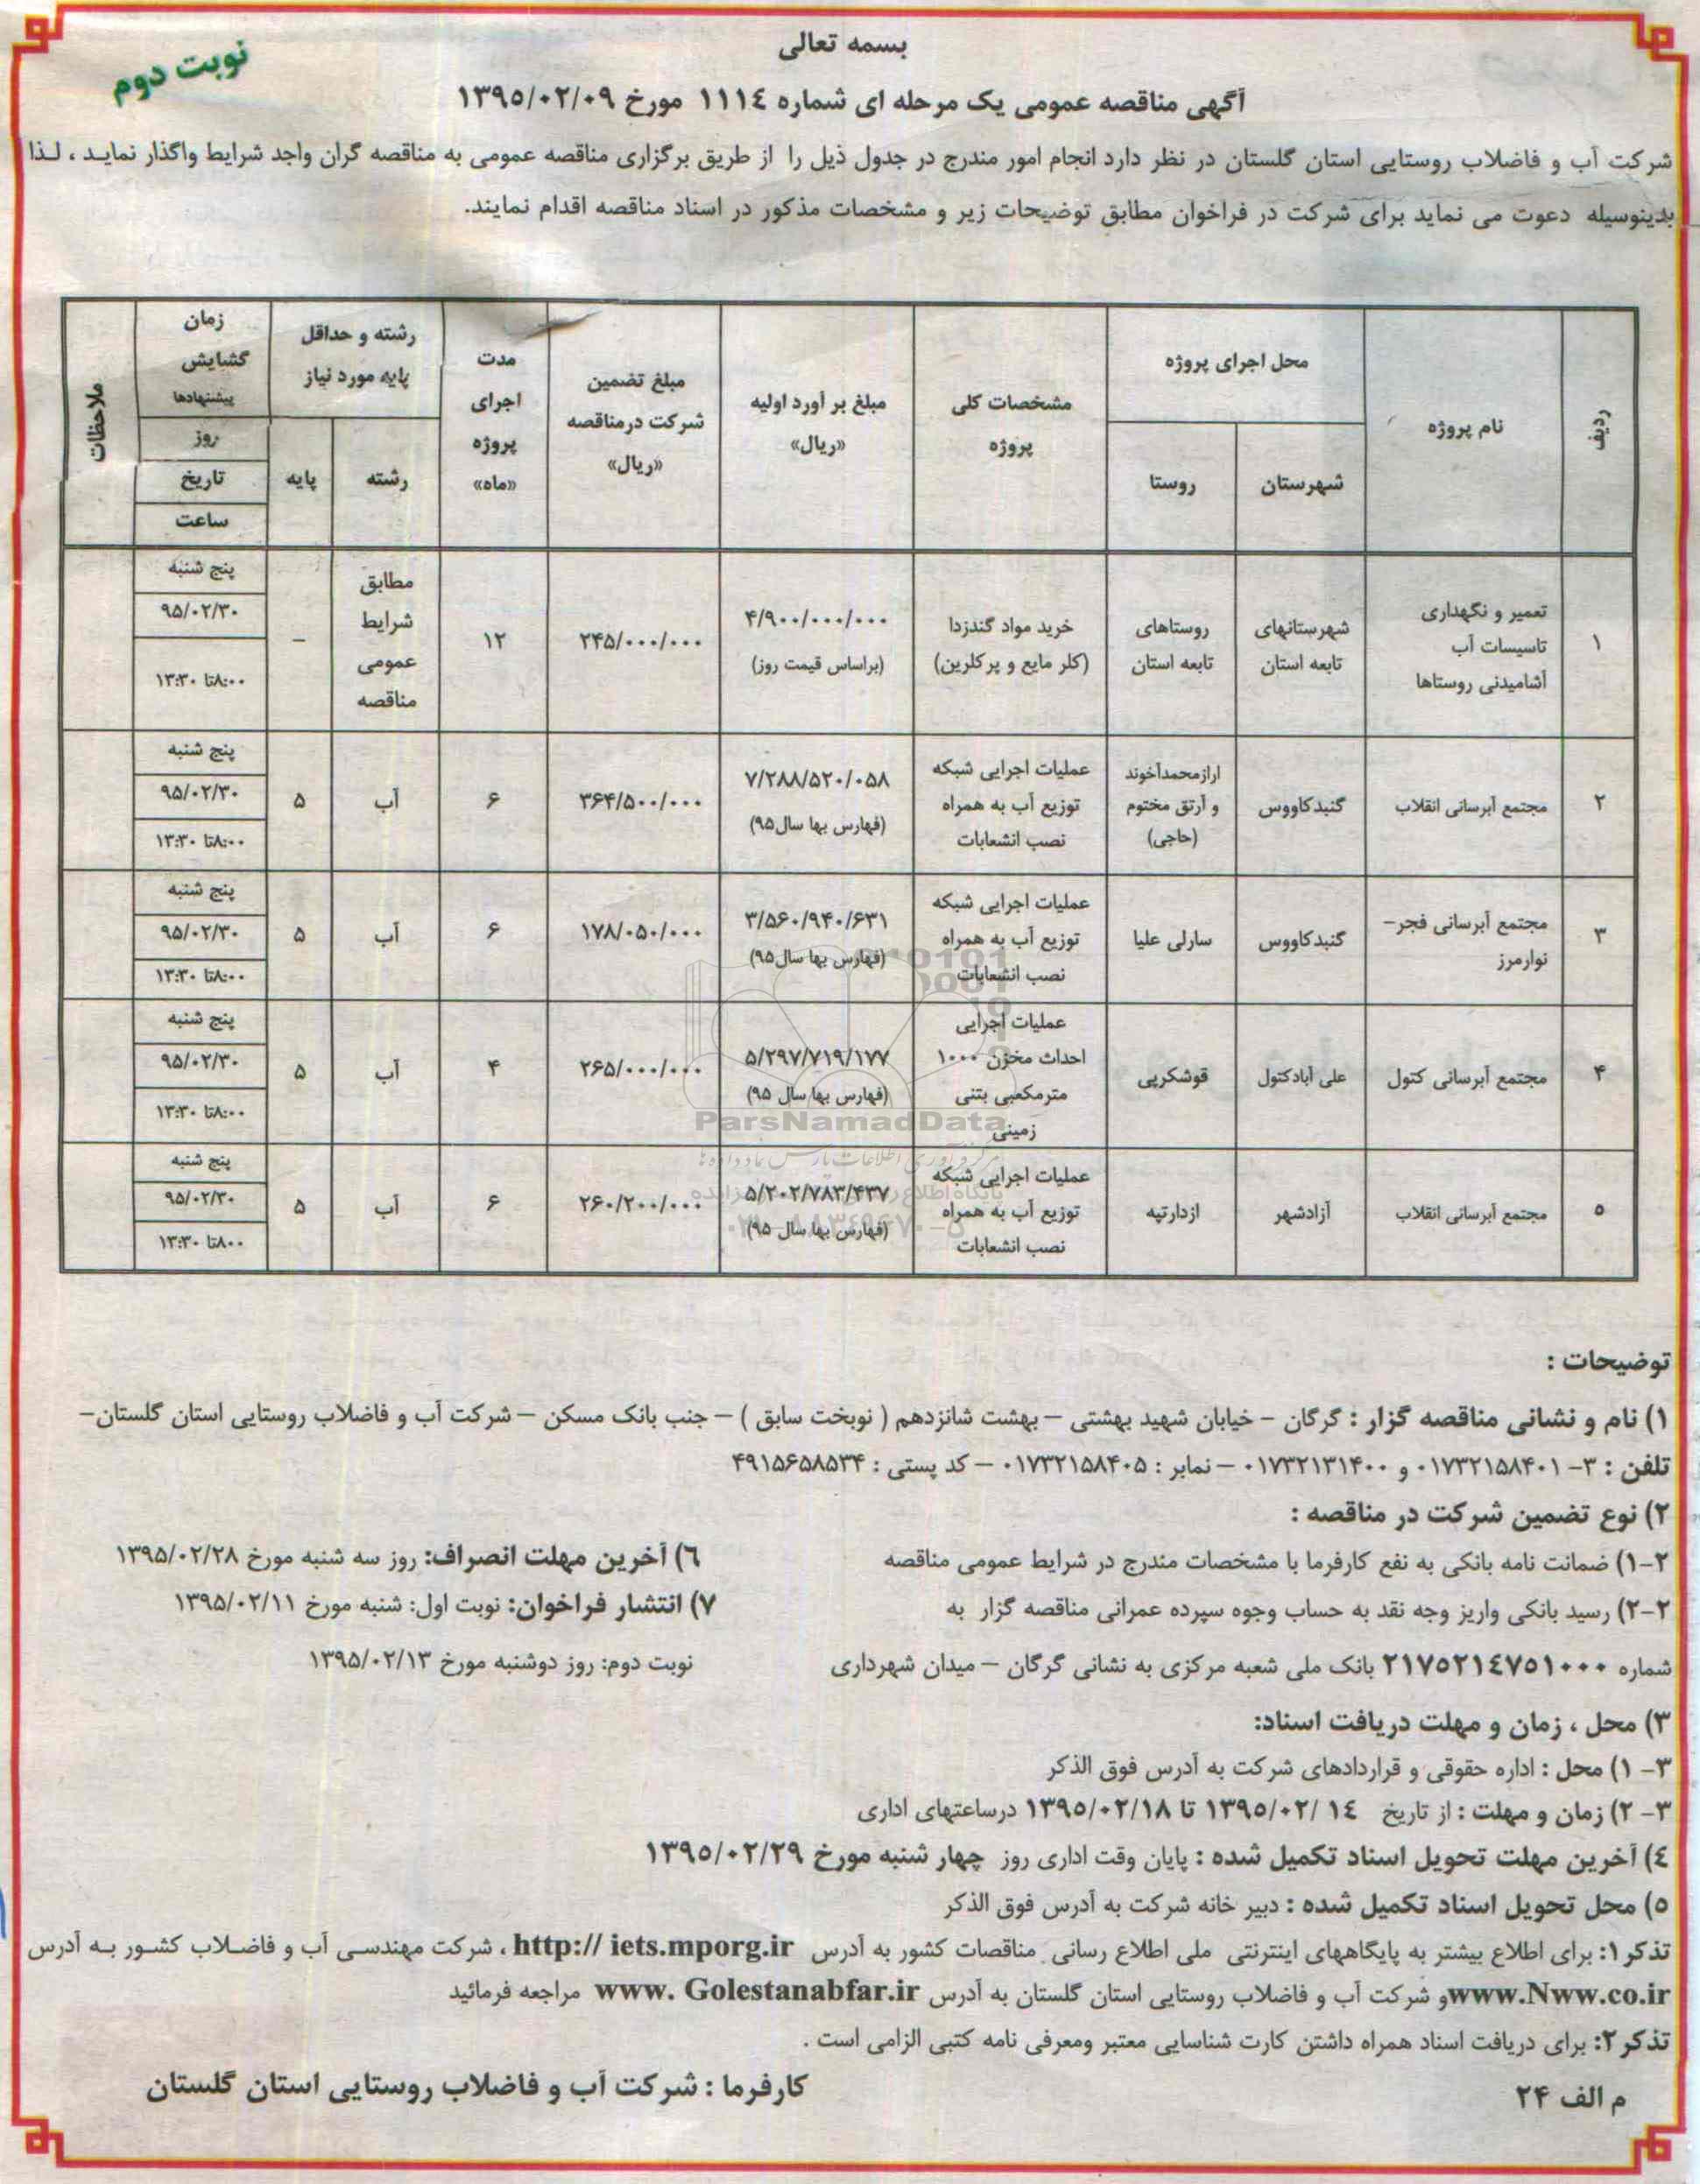 بسمه تعالی
نوبت دوم
آگهی مناقصه عمومی یک مرحله ای شماره ۱۱۱٤ مورخ ۱۳۹۵/۰۲/۰۹
شرکت آب و فاضلاب روستایی استان گلستان در نظر دارد انجام امور مندرج در جدول ذیل را از طریق برگزاری مناقصه عمومی به مناقصه گران واجد شرایط واگذار نماید ، لذا
بدینوسیله دعوت می نماید برای شرکت در فراخوان مطابق توضیحات زیر و مشخصات مذکور در اسناد مناقصه اقدام نمایند.
ردیف | نام پروژه | محل اجرای پروژه | شهرستان | روستا | مشخصات کلی پروژه | مبلغ بر آورد اولیه «ریال» | مبلغ تضمین شرکت درمناقصه «ریال» | مدت اجرای پروژه «ماه» | رشته و حداقل پایه مورد نیاز | رشته | پایه | زمان گشایش پیشنهادها | روز | تاریخ | ساعت | ملاحظات
۱ | تعمیر و نگهداری تاسیسات آب آشامیدنی روستاها | شهرستانهای تابعه استان | روستاهای تابعه استان | خرید مواد گندزدا (کلر مایع و پرکلرین) | ۴/۹۰۰/۰۰۰/۰۰۰ (براساس قیمت روز) | ۲۴۵/۰۰۰/۰۰۰ | ۱۲ | مطابق شرایط عمومی مناقصه | – | پنج شنبه | ۹۵/۰۲/۳۰ | ۸:۰۰تا ۱۳:۳۰
۲ | مجتمع آبرسانی انقلاب | گنبدکاووس | ارازمحمدآخوند و آرتق مختوم (حاجی) | عملیات اجرایی شبکه توزیع آب به همراه نصب انشعابات | ۷/۲۸۸/۵۲۰/۰۵۸ (فهارس بها سال۹۵) | ۳۶۴/۵۰۰/۰۰۰ | ۶ | آب | ۵ | پنج شنبه | ۹۵/۰۲/۳۰ | ۸:۰۰تا ۱۳:۳۰
۳ | مجتمع آبرسانی فجر- نوارمرز | گنبدکاووس | سارلی علیا | عملیات اجرایی شبکه توزیع آب به همراه نصب انشعابات | ۳/۵۶۰/۹۴۰/۶۳۱ (فهارس بها سال۹۵) | ۱۷۸/۰۵۰/۰۰۰ | ۶ | آب | ۵ | پنج شنبه | ۹۵/۰۲/۳۰ | ۸:۰۰تا ۱۳:۳۰
۴ | مجتمع آبرسانی کتول | علی آبادکتول | قوشکرپی | عملیات اجرایی احداث مخزن ۱۰۰۰ مترمکعبی بتنی زمینی | ۵/۲۹۷/۷۱۹/۱۷۷ (فهارس بها سال ۹۵) | ۲۶۵/۰۰۰/۰۰۰ | ۴ | آب | ۵ | پنج شنبه | ۹۵/۰۲/۳۰ | ۸:۰۰تا ۱۳:۳۰
۵ | مجتمع آبرسانی انقلاب | آزادشهر | ازدارتپه | عملیات اجرایی شبکه توزیع آب به همراه نصب انشعابات | ۵/۲۰۲/۷۸۳/۴۳۷ (فهارس بها سال ۹۵) | ۲۶۰/۲۰۰/۰۰۰ | ۶ | آب | ۵ | پنج شنبه | ۹۵/۰۲/۳۰ | ۸۰۰تا ۱۳:۳۰
ParsNamadData
توضیحات :
۱) نام و نشانی مناقصه گزار : گرگان – خیابان شهید بهشتی – بهشت شانزدهم ( نوبخت سابق ) – جنب بانک مسکن – شرکت آب و فاضلاب روستایی استان گلستان–
تلفن : ۳- ۰۱۷۳۲۱۵۸۴۰۱ و ۰۱۷۳۲۱۳۱۴۰۰ – نمابر : ۰۱۷۳۲۱۵۸۴۰۵ – کد پستی : ۴۹۱۵۶۵۸۵۳۴
۲) نوع تضمین شرکت در مناقصه :
۲-۱) ضمانت نامه بانکی به نفع کارفرما با مشخصات مندرج در شرایط عمومی مناقصه
۲-۲) رسید بانکی واریز وجه نقد به حساب وجوه سپرده عمرانی مناقصه گزار به
شماره ۲۱۷۵۲۱٤۷۵۱۰۰۰ بانک ملی شعبه مرکزی به نشانی گرگان – میدان شهرداری
۳) محل ، زمان و مهلت دریافت اسناد:
۳- ۱) محل : اداره حقوقی و قراردادهای شرکت به آدرس فوق الذکر
۳- ۲) زمان و مهلت : از تاریخ ۱٤ /۱۳۹۵/۰۲ تا ۱۳۹۵/۰۲/۱۸ درساعتهای اداری
٤) آخرین مهلت تحویل اسناد تکمیل شده : پایان وقت اداری روز چهار شنبه مورخ ۱۳۹۵/۰۲/۲۹
۵) محل تحویل اسناد تکمیل شده : دبیر خانه شرکت به آدرس فوق الذکر
٦) آخرین مهلت انصراف: روز سه شنبه مورخ ۱۳۹۵/۰۲/۲۸
۷) انتشار فراخوان: نوبت اول: شنبه مورخ ۱۳۹۵/۰۲/۱۱
نوبت دوم: روز دوشنبه مورخ ۱۳۹۵/۰۲/۱۳
تذکر ۱: برای اطلاع بیشتر به پایگاههای اینترنتی ملی اطلاع رسانی مناقصات کشور به آدرس http:// iets.mporg.ir ، شرکت مهندسی آب و فاضلاب کشور به آدرس
www.Nww.co.ir و شرکت آب و فاضلاب روستایی استان گلستان به آدرس www. Golestanabfar.ir مراجعه فرمائید
تذکر ۲: برای دریافت اسناد همراه داشتن کارت شناسایی معتبر ومعرفی نامه کتبی الزامی است .
کارفرما : شرکت آب و فاضلاب روستایی استان گلستان
م الف ۲۴